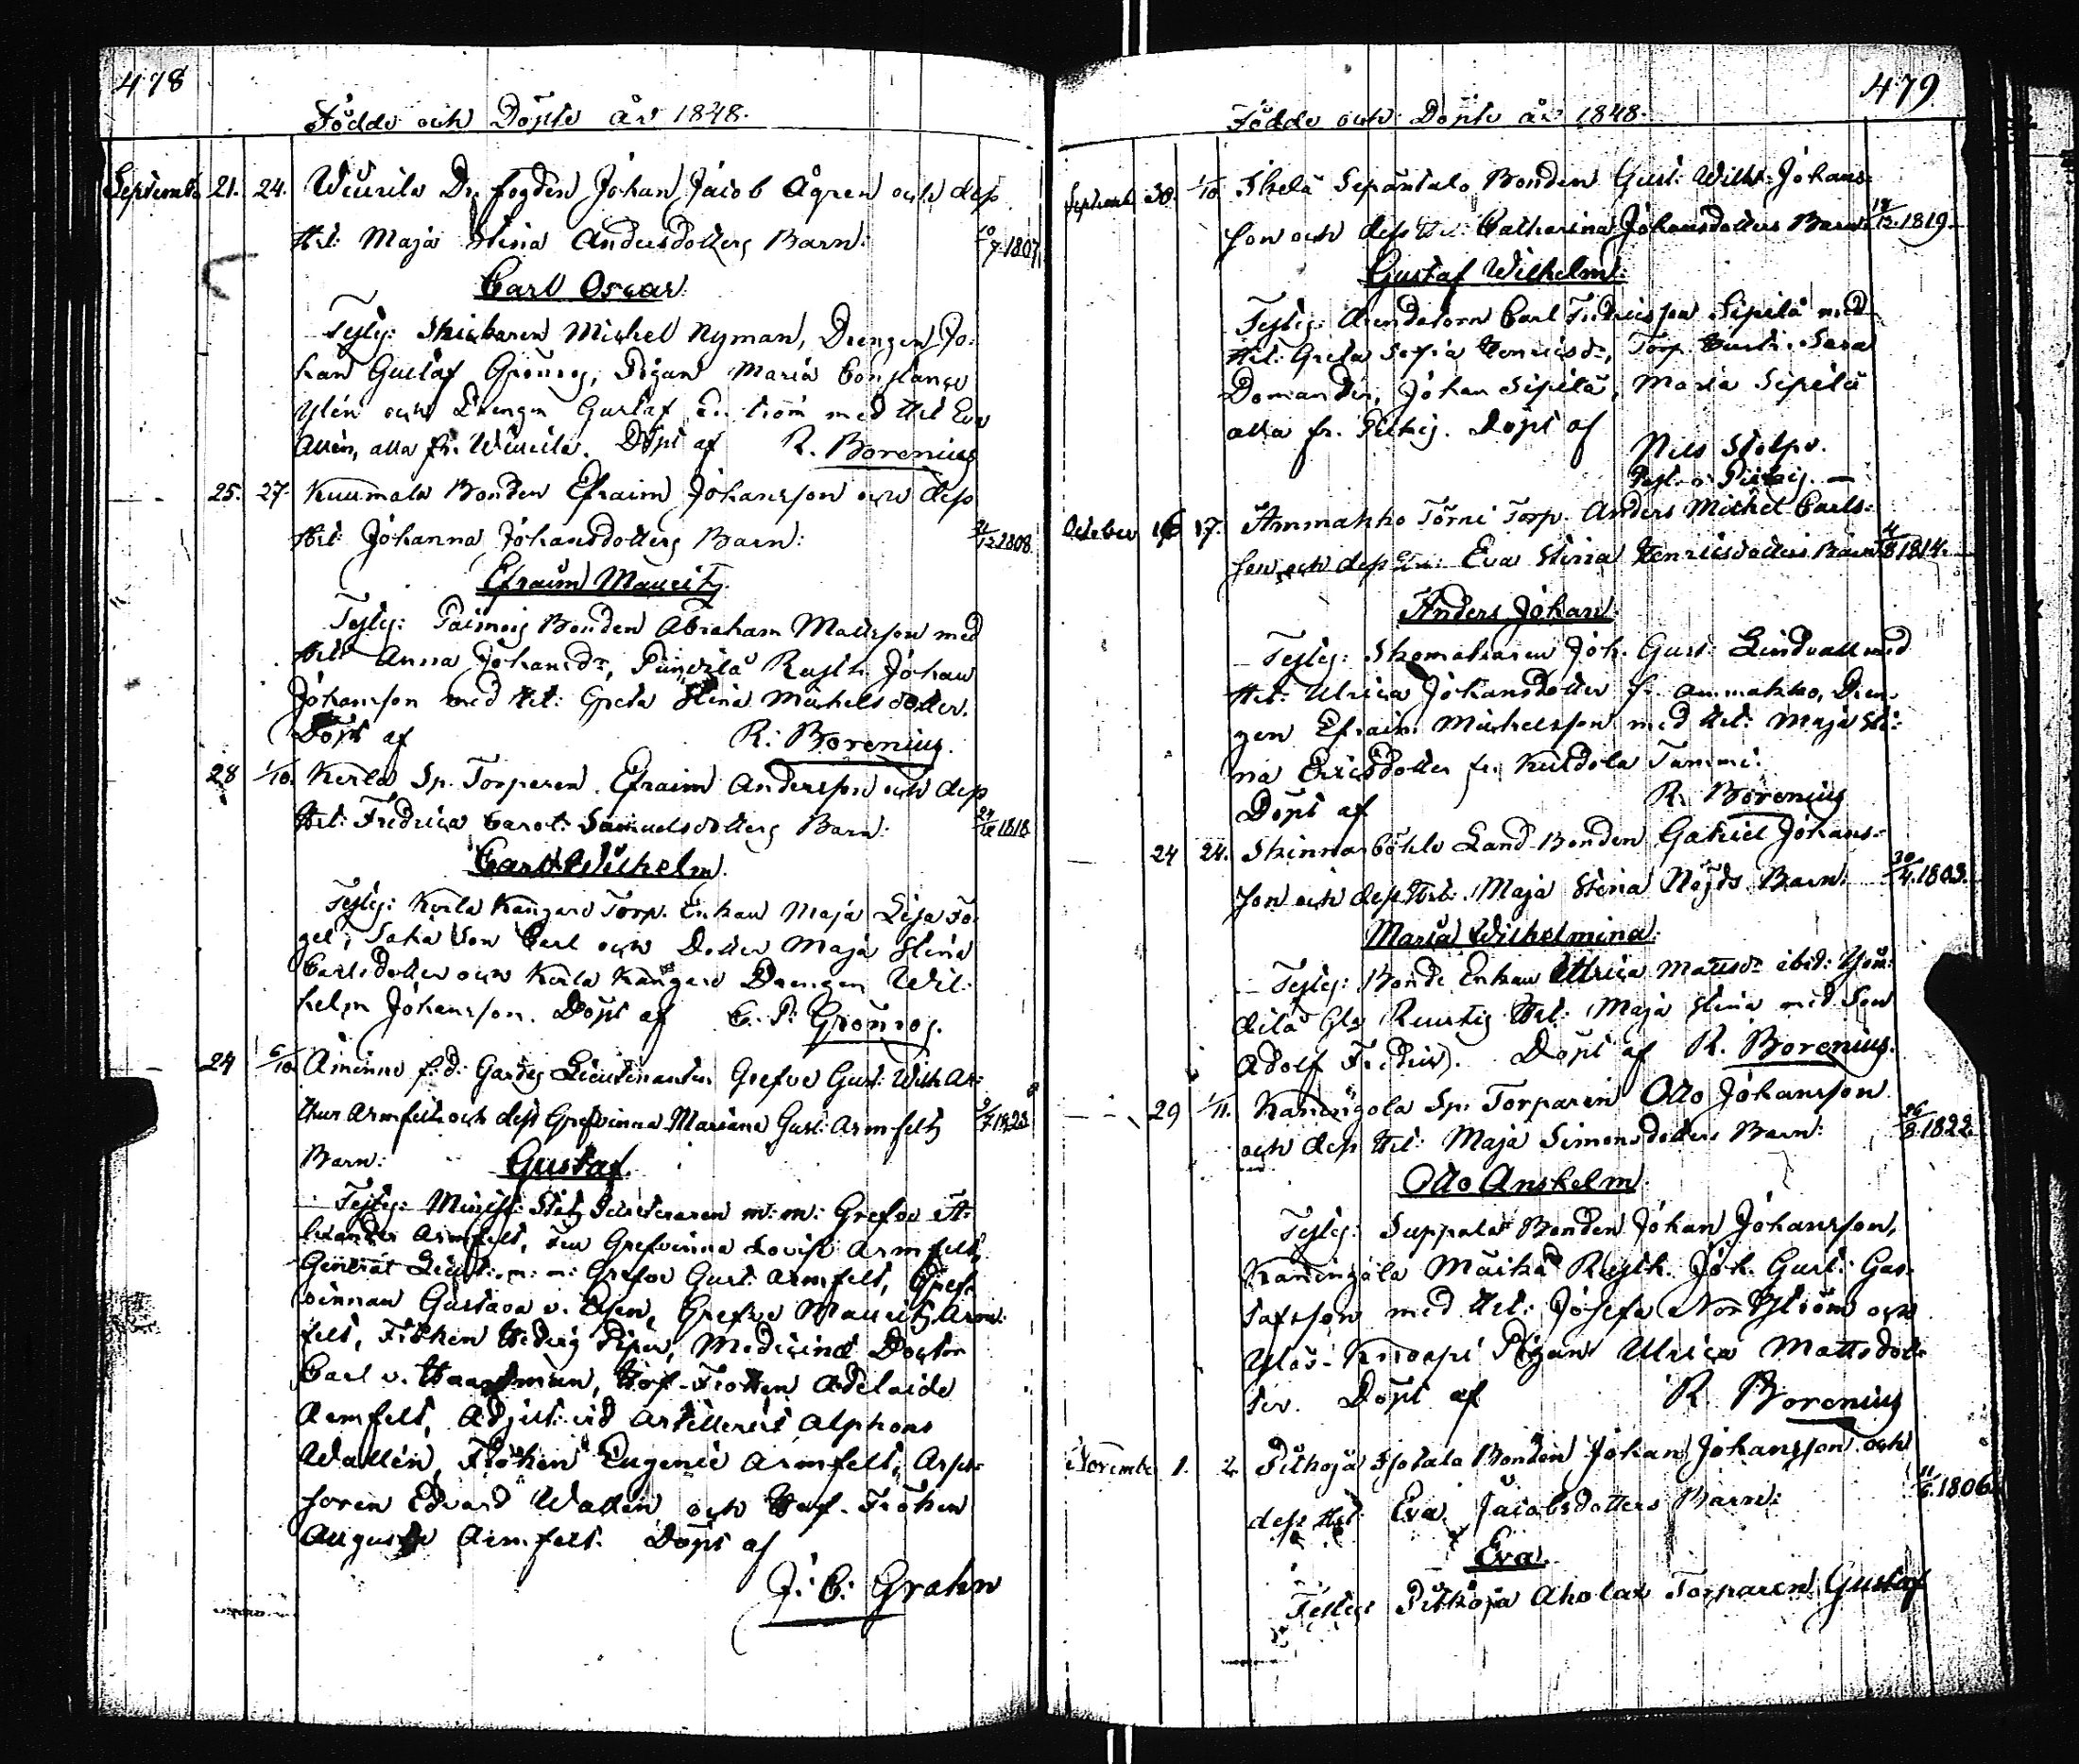 478
Födde och Döpte år 1848.
Septemb. 21. 24. Wiurila Dr. fogden Johan Jacob Ågren och dess
Hst: Maja Stina Andersdotters Barn: 10/7 1807.
Carl Oscar.
Testes: Michel Nyman, Drengen Jo-
han Gustaf Grönroos, Pigan Maria Constance
och Drengen Gustaf med Hst Eva
alla fr. Wiurila. Döpt af R. Borenius
25. 27. Kuumala Bonden Efraim Johansson och dess
Hst: Johanna Johansdotters Barn: /12 1808.
Efraim Mauritz.
Testes: Paimais Bonden Abraham Mattsson med
Hst: Anna Johansdr, Rusth. Johan
Johansson med Hst: Greta Stina Michelsdotter.
Döpt af R: Borenius.
28 1/10. Kerla Sp. Torparen Efraim Andersson och dess
Hst: Fredrica Carol: Samuelsdotters Barn: 24/12 1818
Carl Wilhelm.
Testes: Kerla Torp. Enkan Maja Lisa Fo-
gel, Son Carl och Dotter Maja Stina
Carlsdotter och Kerla Drengen Wil-
helm Johansson. Döpt af G. P: Grönroos.
24 6/10. Åminne f.d: Gardes Lieutenanten Grefve Gust: Wilh Ar-
thur Armfelt och dess Grefvinna Mariana Gust: Armfelts
Barn: Gustaf.
Testes: Minist: Stats Secreteraren m: m: Grefve A-
lexander Armfelt, Fru Grefvinna Lovise Armfelt,
General Lieut: m: m: Grefve Gust: Armfelt, Gref-
vinnan Gustava v. Grefve Mauritz Arm-
felt, Fröken Hedvig Piper, Medicine Doctor
Carl v. Haartman, Hof-Fröken Adelaide
Armfelt, Adjut: vid Artilleriet Alphons
Wallén, Fröken Eugenie Armfelt, Asses-
soren Edvard Wallén och Hof-Fröken
Auguste Armfelt. Döpt af
J: C: Grahn
479
Födde och Döpte år 1848.
Septemb 30. 1/10. Bonden Gust: Wilh: Johans-
son och dess Hst: Catharina Johansdotters Barn: 18/12 1819.
Gustaf Wilhelm.
Testes: Arendatorn Carl Fredricsson Sipilä med
Hst: Greta Sofia Henricsdr, Torp. Sara
Domander, Johan Sipilä, Maria Sipilä
alla fr. Döpt af
Nils Stolpe.
October 16 17. Ammakko Törni Torp. Anders Michel Carls-
son och dess Eva Stina Henricsdotters Barn 4/8 1814.
Anders Johan.
Testes: Skomakaren Joh. Gust: Lindvall med
Hst: Ulrica Johansdotter fr. Ammakko, Dren-
gen Efraim Michelsson med Hst: Maja Sti-
na Ericsdotter fr. Tammi.
Döpt af R. Borenius
24 24. Skinnarböhle Land-Bonden Gabriel Johans-
son och dess Hst: Maja Stina Nöjds Barn. 30/4 1803.
Maria Wilhelmina.
Testes: Bonde Enkan Ulrica Mattsdr ibid:
Rustig Hst: Maja Stina med Son
Adolf Fredric. Döpt af R. Borenius.
29 1/11. Kaningola Sp. Torparen Otto Johansson
och dess Hst: Maja Simonsdotters Barn: 26/8 1822
Otto Anshelm.
Testes: Suppala Bonden Johan Johansson,
Kaningola Rusth. Joh. Gust: Gus-
tafsson med Hst: Josefa Nordström och
Pigan Ulrica Mattsdot-
ter. Döpt af R. Borenius
Novembr 1. 2. Pitkoja Bonden Johan Johansson och
dess Hst. Eva Jacobsdotters Barn: 11/6 1806
Eva.
Testes: Pitkoja Ahola Torparen Gustaf